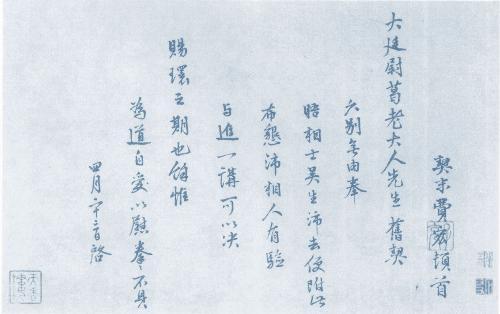 契末費宏頓首
大廷尉葛老大人先生舊契
久別無由奉
晤相士吴生沛去便附此
布懇沛相人有驗
与進一講可以决
賜環之期也餘惟
為道自愛以慰拳〻不具
四月廿二日啓